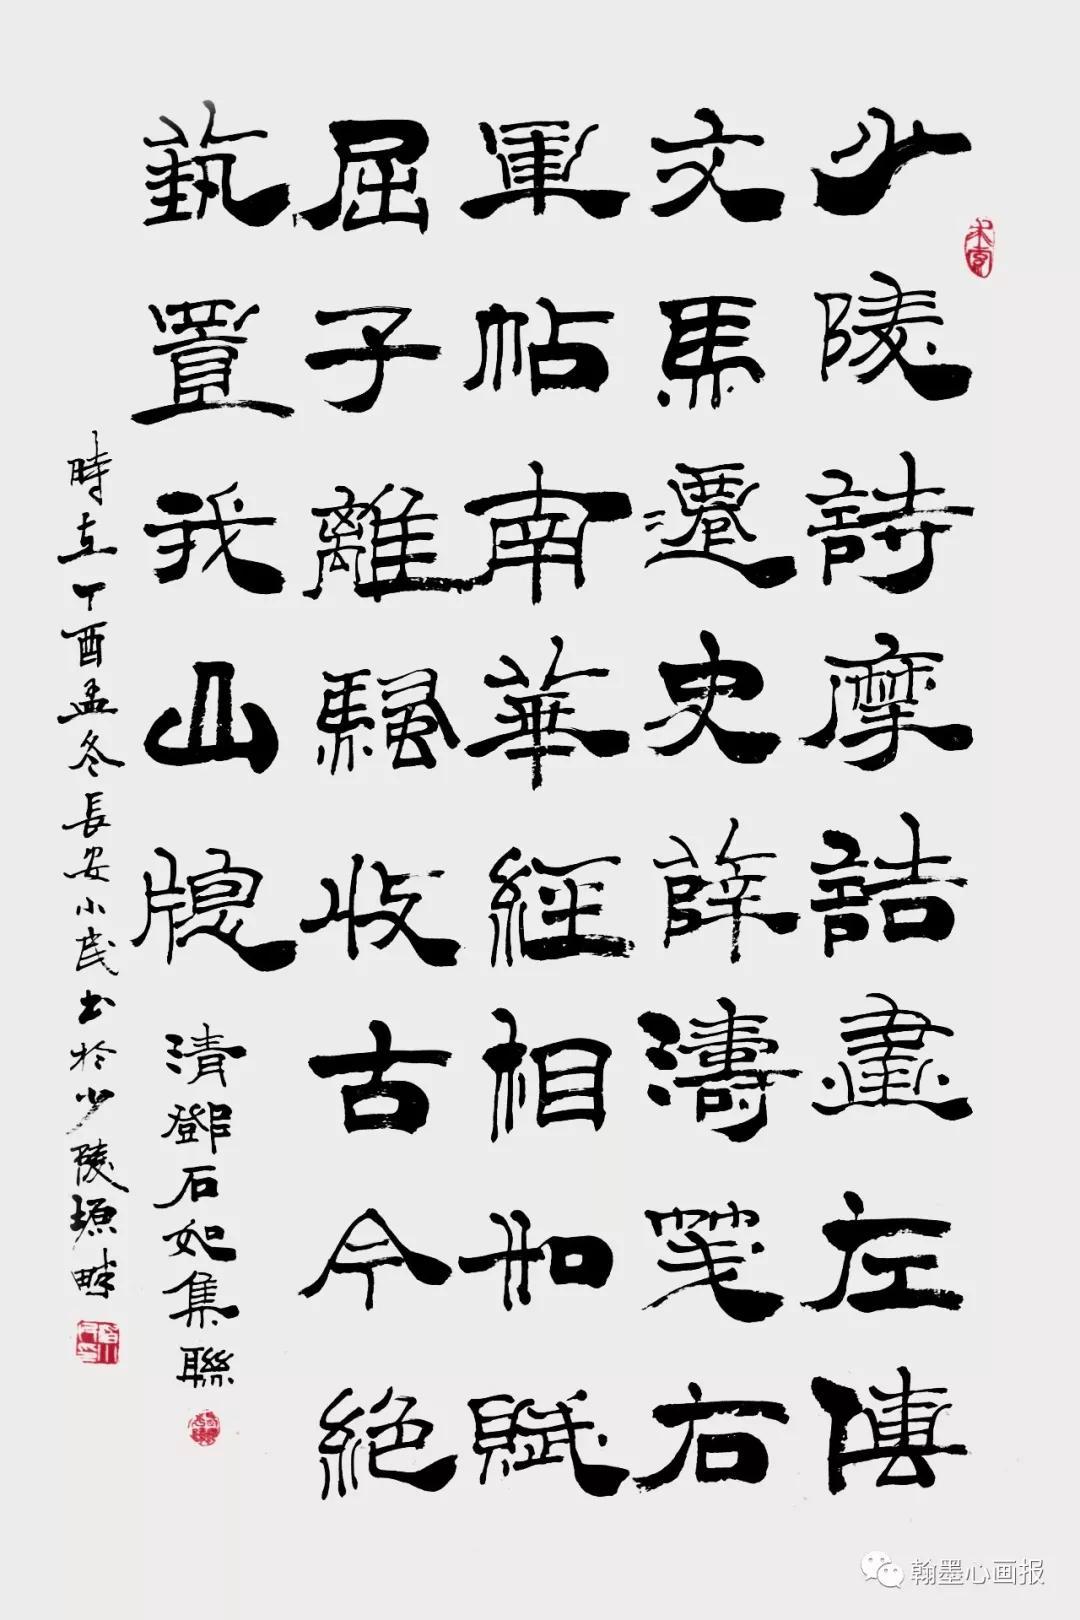 少陵詩摩詰畫左傳
文馬遷史薛濤箋右
軍帖南華經相如賦
屈子離騷收古今絕
藝置我山牎
清鄧石如集聯
時在丁酉孟冬長安小民書於少陵塬畔
翰墨心画报